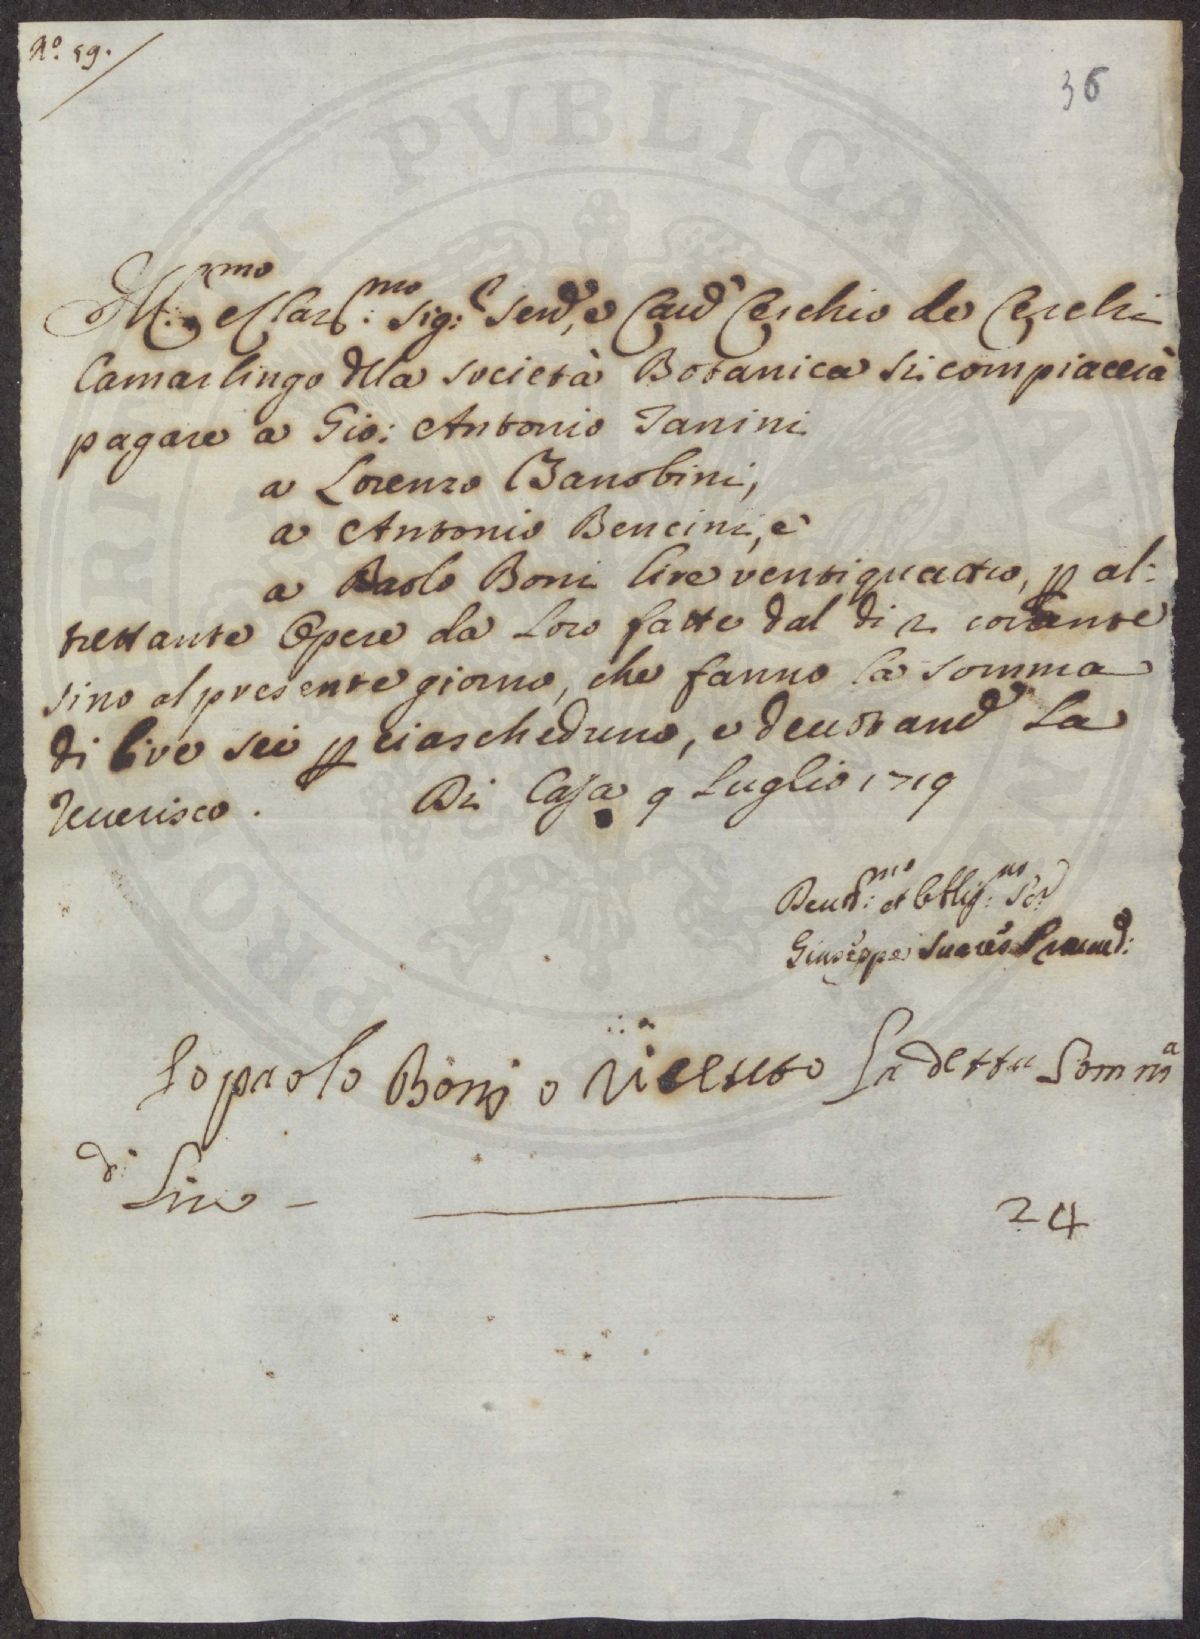 N.o 59.
36
Ill:mo e Clar:mo Sig:r Send.e, e Cav.r Cerchio de Cerchi
Camarlingo dlla società Botanica si compiacerà
pagare a Gio: Antonio Janini
a Lorenzo Zanobini,
a Antonio Bencini, e
a Paolo Boni lire ventiquattro, p al:
trettante Opere da Loro fatte dal di 2 corrente
sino al presente giorno, che fanno la somma
di lire sei p ciascheduno, e
La
reverisco. Di Casa 9 Luglio 1719
Deud:mo et Obblig:mo Se.r
Giuseppe
Io paolo Boni o riceuto La detta Somma
di Lire — 24